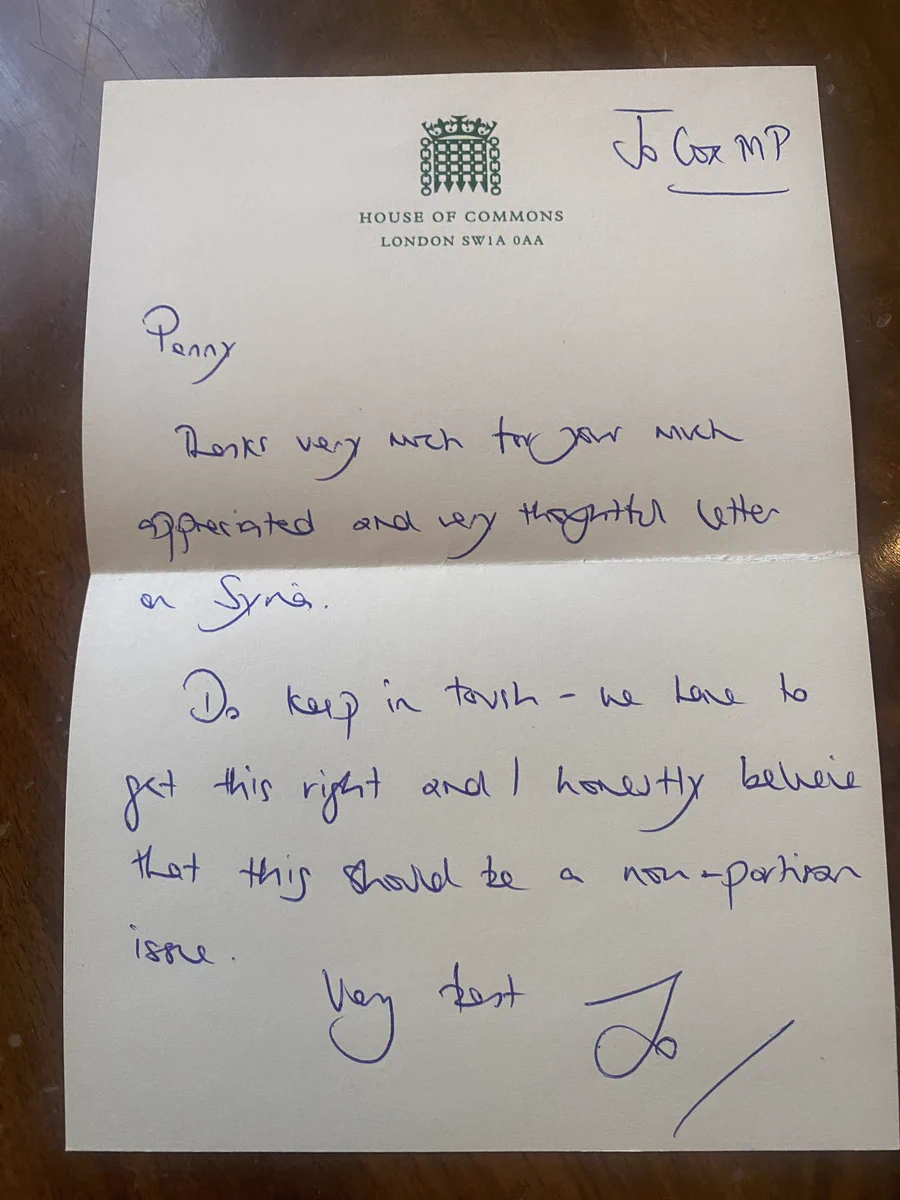 Jo Cox MP
HOUSE OF COMMONS
LONDON SW1A 0AA
Penny
Thanks very much for your much
appreciated and very thoughtful letter
on Syria.
Do keep in touch - we have to
get this right and I honestly believe
that this should be a non-partisan
issue.
Very best Jo